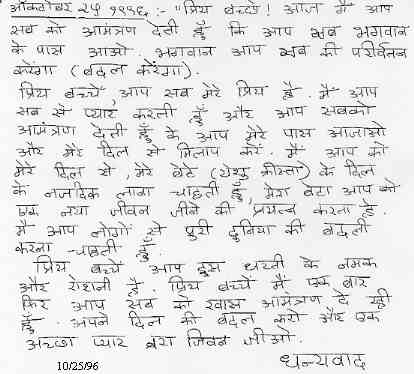 ऑक्टोबर २५ १९९६ :- "प्रिय बच्चों! आज मैं आप
सब को आमंत्रण देती हूँ कि आप सब भगवान
के पास आओ. भगवान आप सब को परिवर्तन
करेगा (बदल करेगा).
प्रिय बच्चें आप सब मेरे प्रिय है. मैं आप
सब से प्यार करती हूँ और आप सबको
आमंत्रण देती हूँ के आप मेरे पास आजाओ
और मेरे दिल से मिलाप करे. मैं आप को
मेरे दिल से, मेरे बेटे (येशु क्रीस्ता) के दिल
के नजदिक लाना चाहती हूँ, मेरा बेटा आप को
एक नया जीवन जीने की प्रयत्न करता है.
मैं आप लोगों से पुरी दुनिया की बदली
करना चाहती हूँ.
प्रिय बच्चें आप इस धरती के नमक
और रोशनी है. प्रिय बच्चें मैं एक बार
फिर आप सब को खास आमंत्रण दे रही
हूँ. अपने दिल की बदल करो और एक
अच्छा प्यार भरा जिवन जीओ.
धन्यवाद
10/25/96